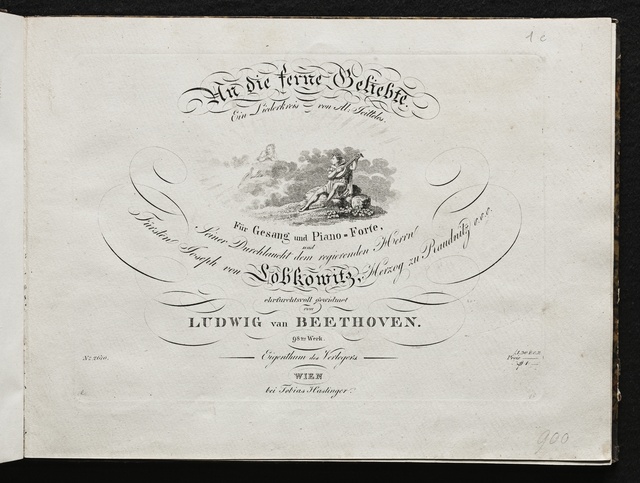 1 c
An die ferne Geliebte.
Ein Liederkreis von Al. Jeitteles.
Für Gesang und Piano-Forte,
und
Seiner Durchlaucht dem regierenden Herrn
Fürsten Joseph von Lobkowitz, Herzog zu Raudnitz &.&.&.
ehrfurchtsvoll gewidmet
von
LUDWIG van BEETHOVEN.
98tes Werk.
Eigenthum des Verlegers
Nº 2610.
Preis
WIEN
bei Tobias Haslinger.
900